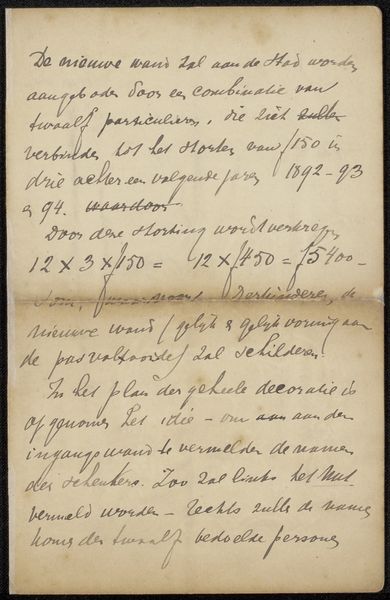 De nieuwe wand zal aan de Stad worden
aangeboden door een combinatie van
twaalf particulieren, die zich zullen
verbinden tot het storten van ƒ150 in
drie achtereenvolgende jaren 1892-93
en 94. waardoor
Door deze storting wordt verkregen
12 x 3 x ƒ150 = 12 x ƒ450 = ƒ5400-
som, Derkinderen, de
nieuwe wand (gelijk & gelijkvormig aan
de pas voltooide) zal schilderen.
In het plan der geheele decoratie is
opgenomen het idie - om aan aan den
ingangswand te vermelden de namen
der schenkers. Zoo zal links het Nut
vermeld worden - rechts zullen de namen
der twaalf bedoelde personen